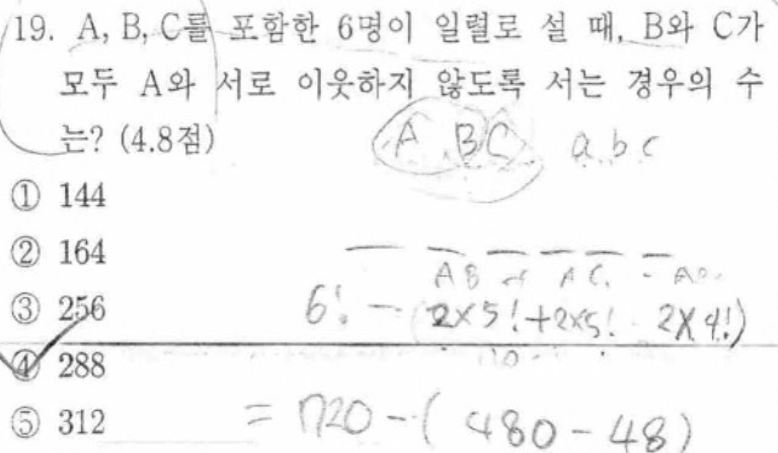 19. A, B, C를 포함한 6명이 일렬로 설 때, B와 C가
모두 A와 서로 이웃하지 않도록 서는 경우의 수
는? (4.8점)
A BC a b c
① 144
② 164
AB AC
③ 256
6! - (2×5!+2×5! 2×4!)
④ 288
⑤ 312
= 720 - (480 - 48)